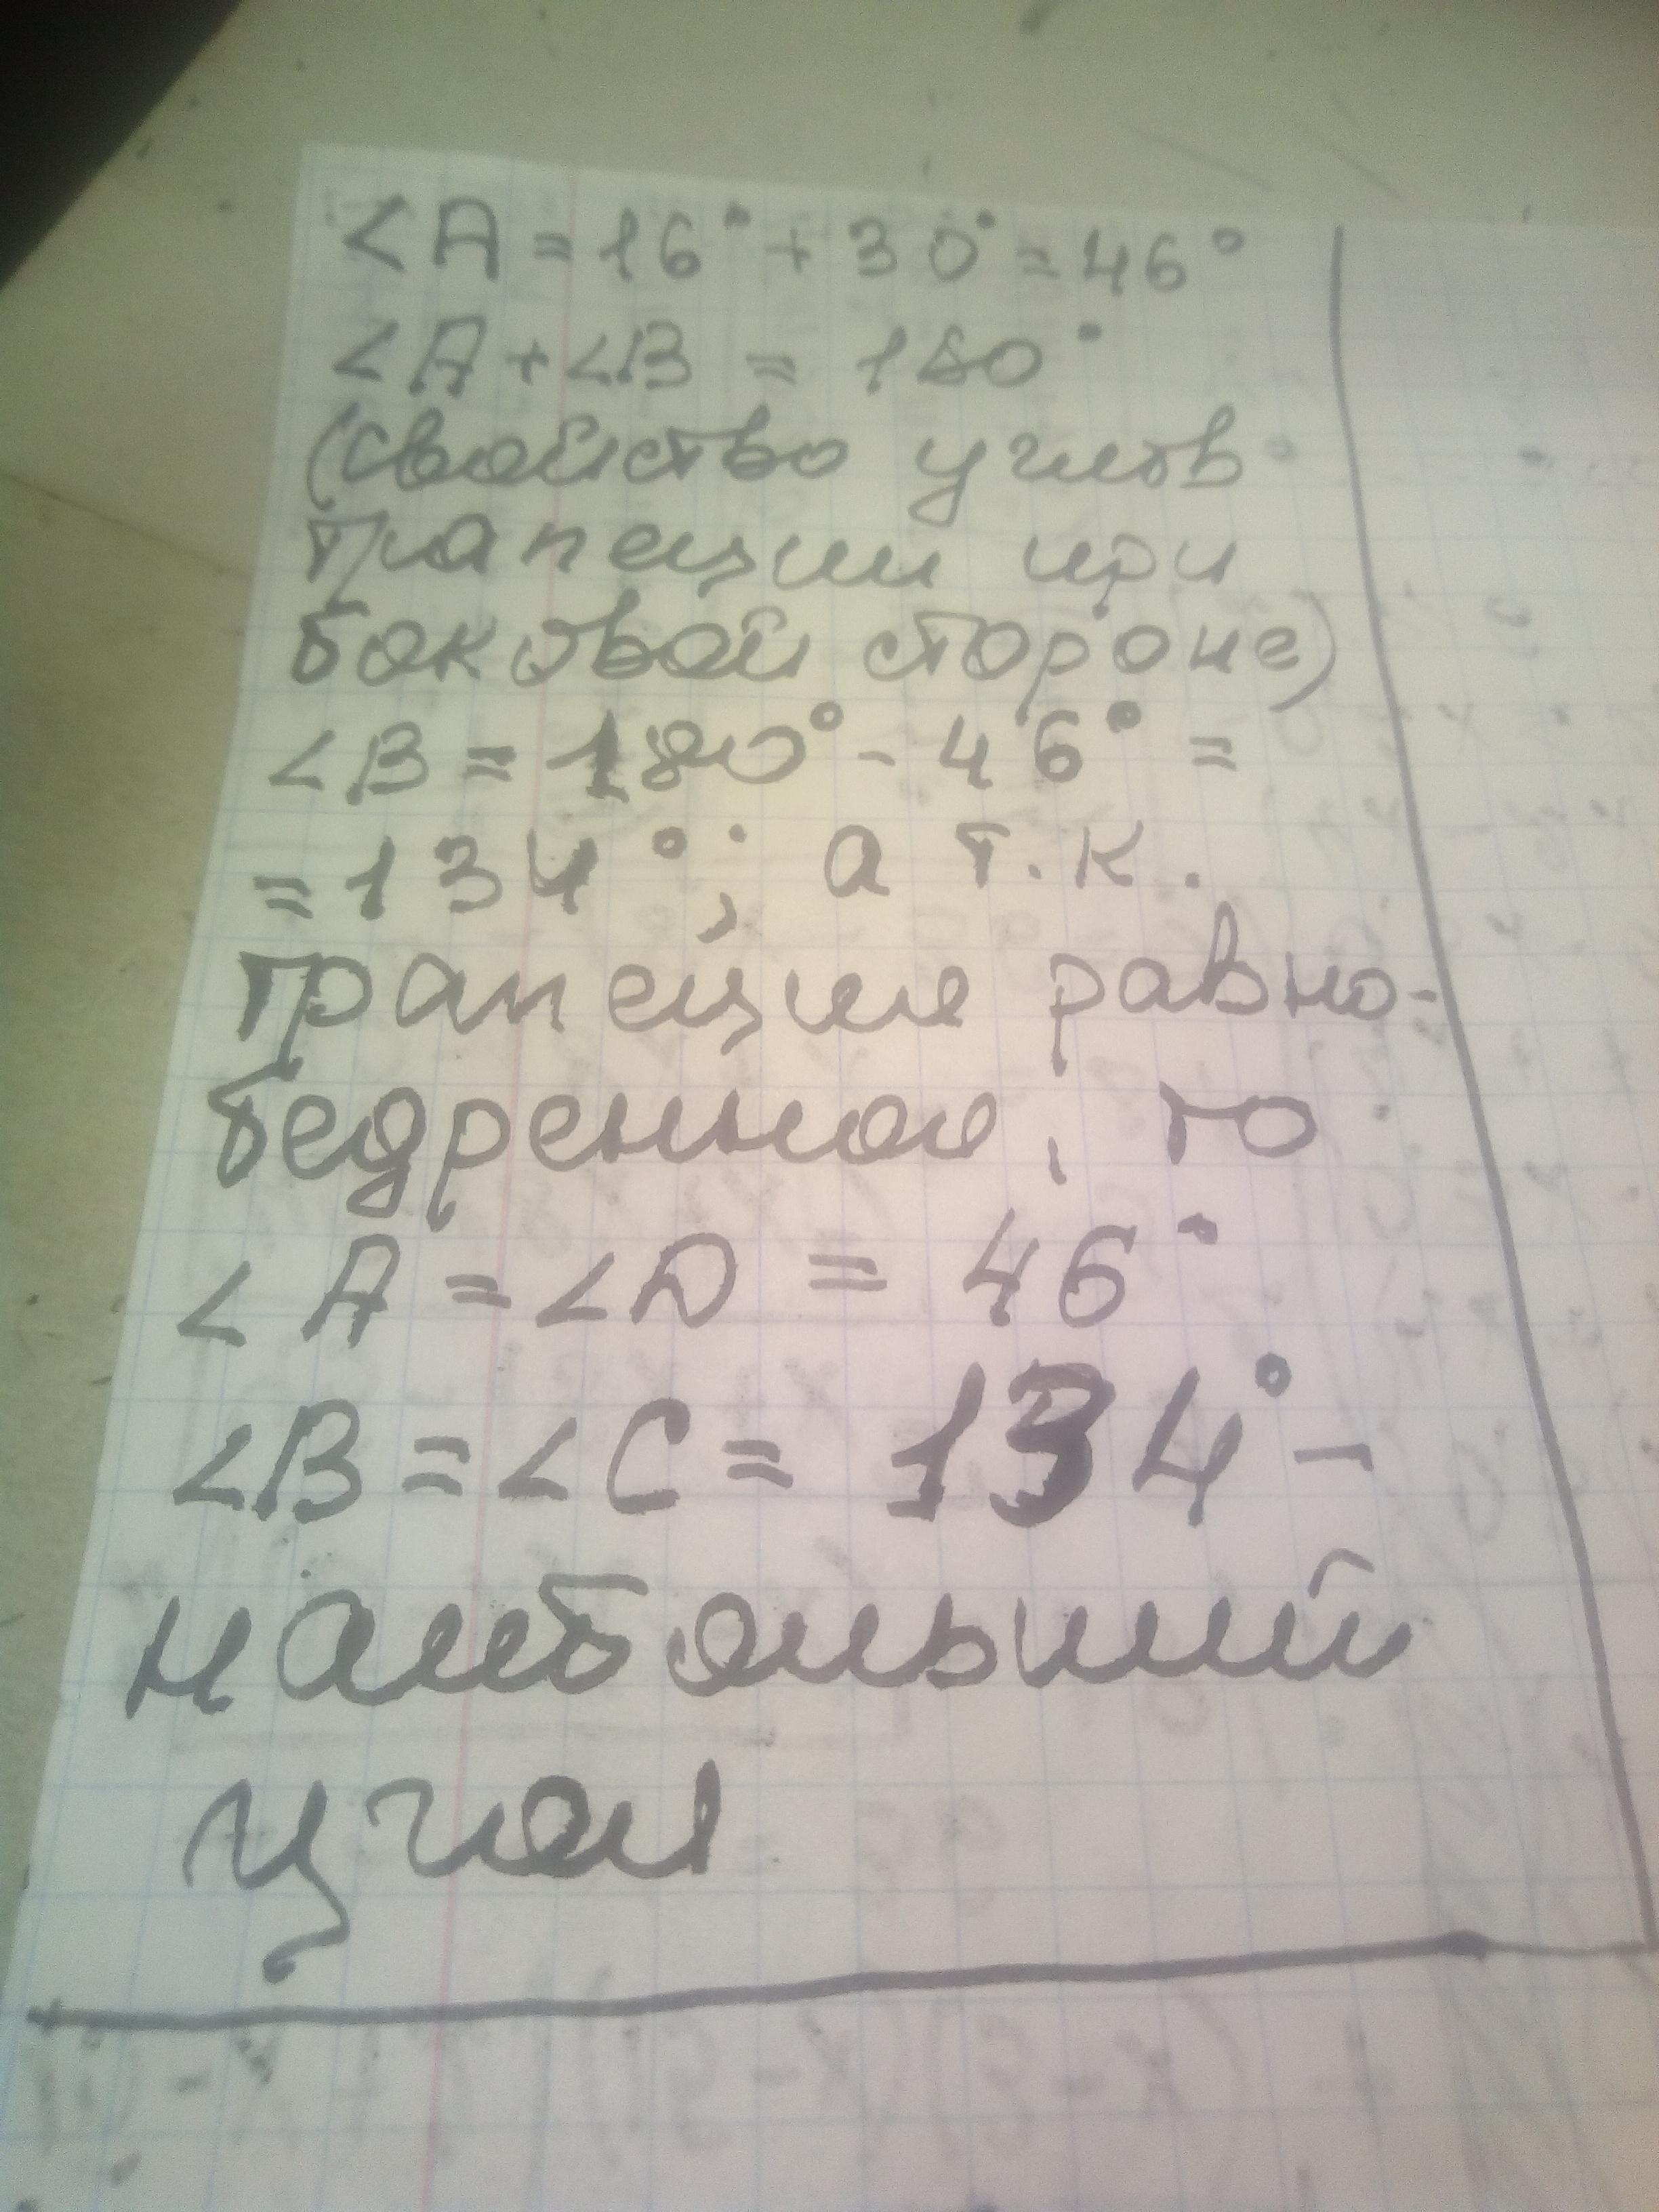 ∠A = 16° + 30° = 46°
∠A + ∠B = 180°
(свойство углов
трапеции при
боковой стороне)
∠B = 180° - 46° =
= 134°; а т.к.
трапеция равно-
бедренная, то
∠A = ∠D = 46°
∠B = ∠C = 134° –
наибольший
угол